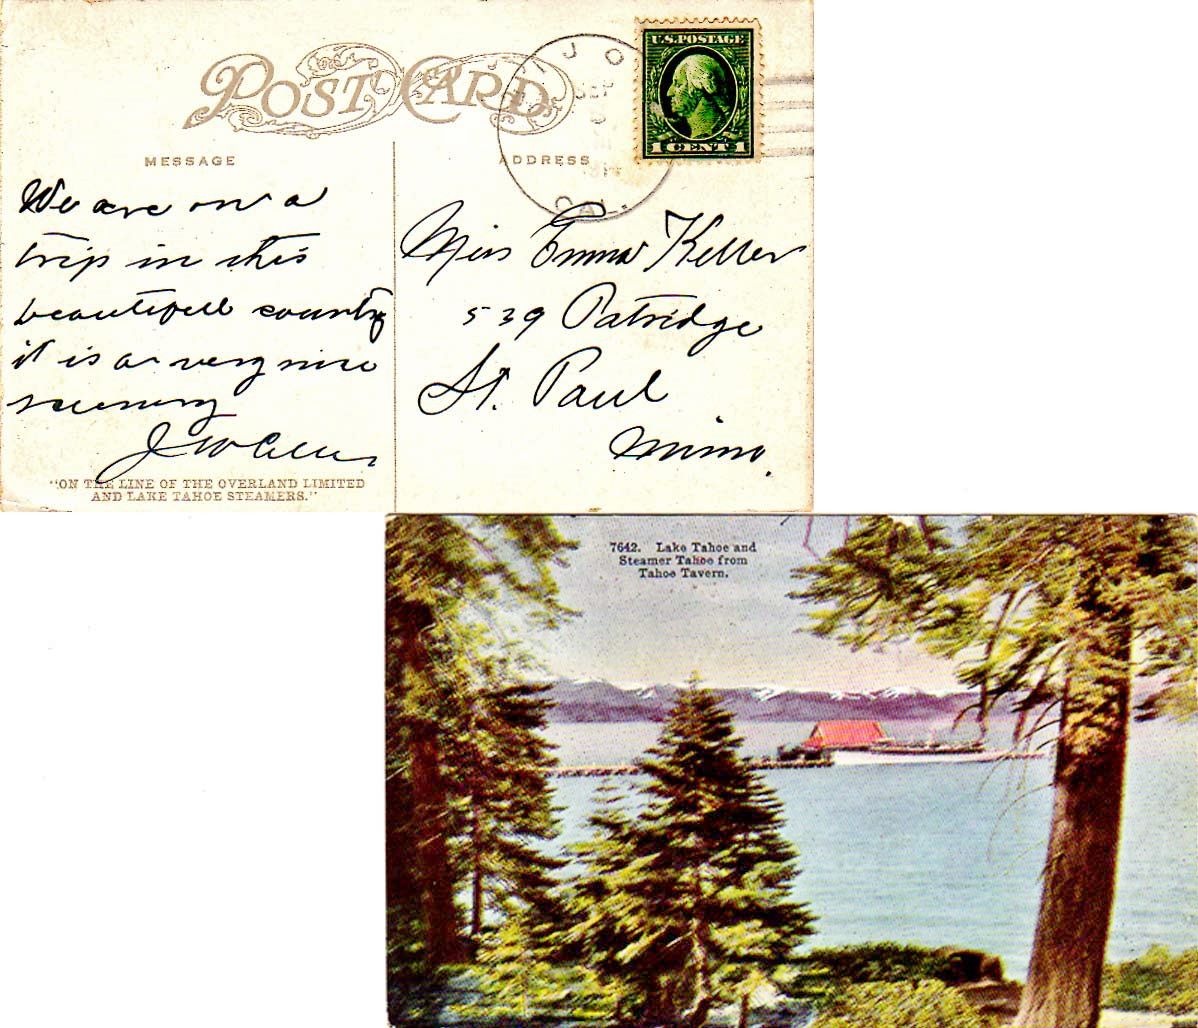 POST CARD
MESSAGE
ADDRESS
U.S. POSTAGE
1 CENT 1
SEP
CAL.
We are on a
trip in this
beautifull country
it is a very nice
scenery
Miss Emma Keller
539 Patridge
St. Paul
Minn.
"ON THE LINE OF THE OVERLAND LIMITED
AND LAKE TAHOE STEAMERS."
7642. Lake Tahoe and
Steamer Tahoe from
Tahoe Tavern.